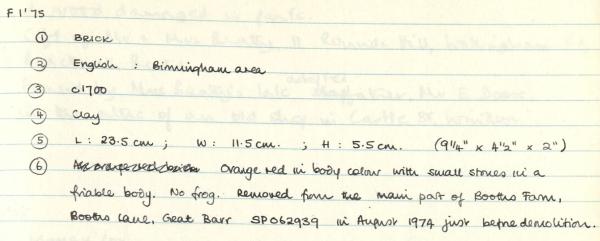 F 1'75
① BRICK
② English : Birmingham area
③ c1700
④ Clay
⑤ L : 23.5 cm ; W : 11.5 cm. ; H : 5.5 cm. (9¼" x 4½" x 2")
⑥ Orange red in body colour with small stones in a
friable body. No frog. Removed from the main part of Booths Farm,
Booths Lane, Great Barr SP062939 in August 1974 just before demolition.